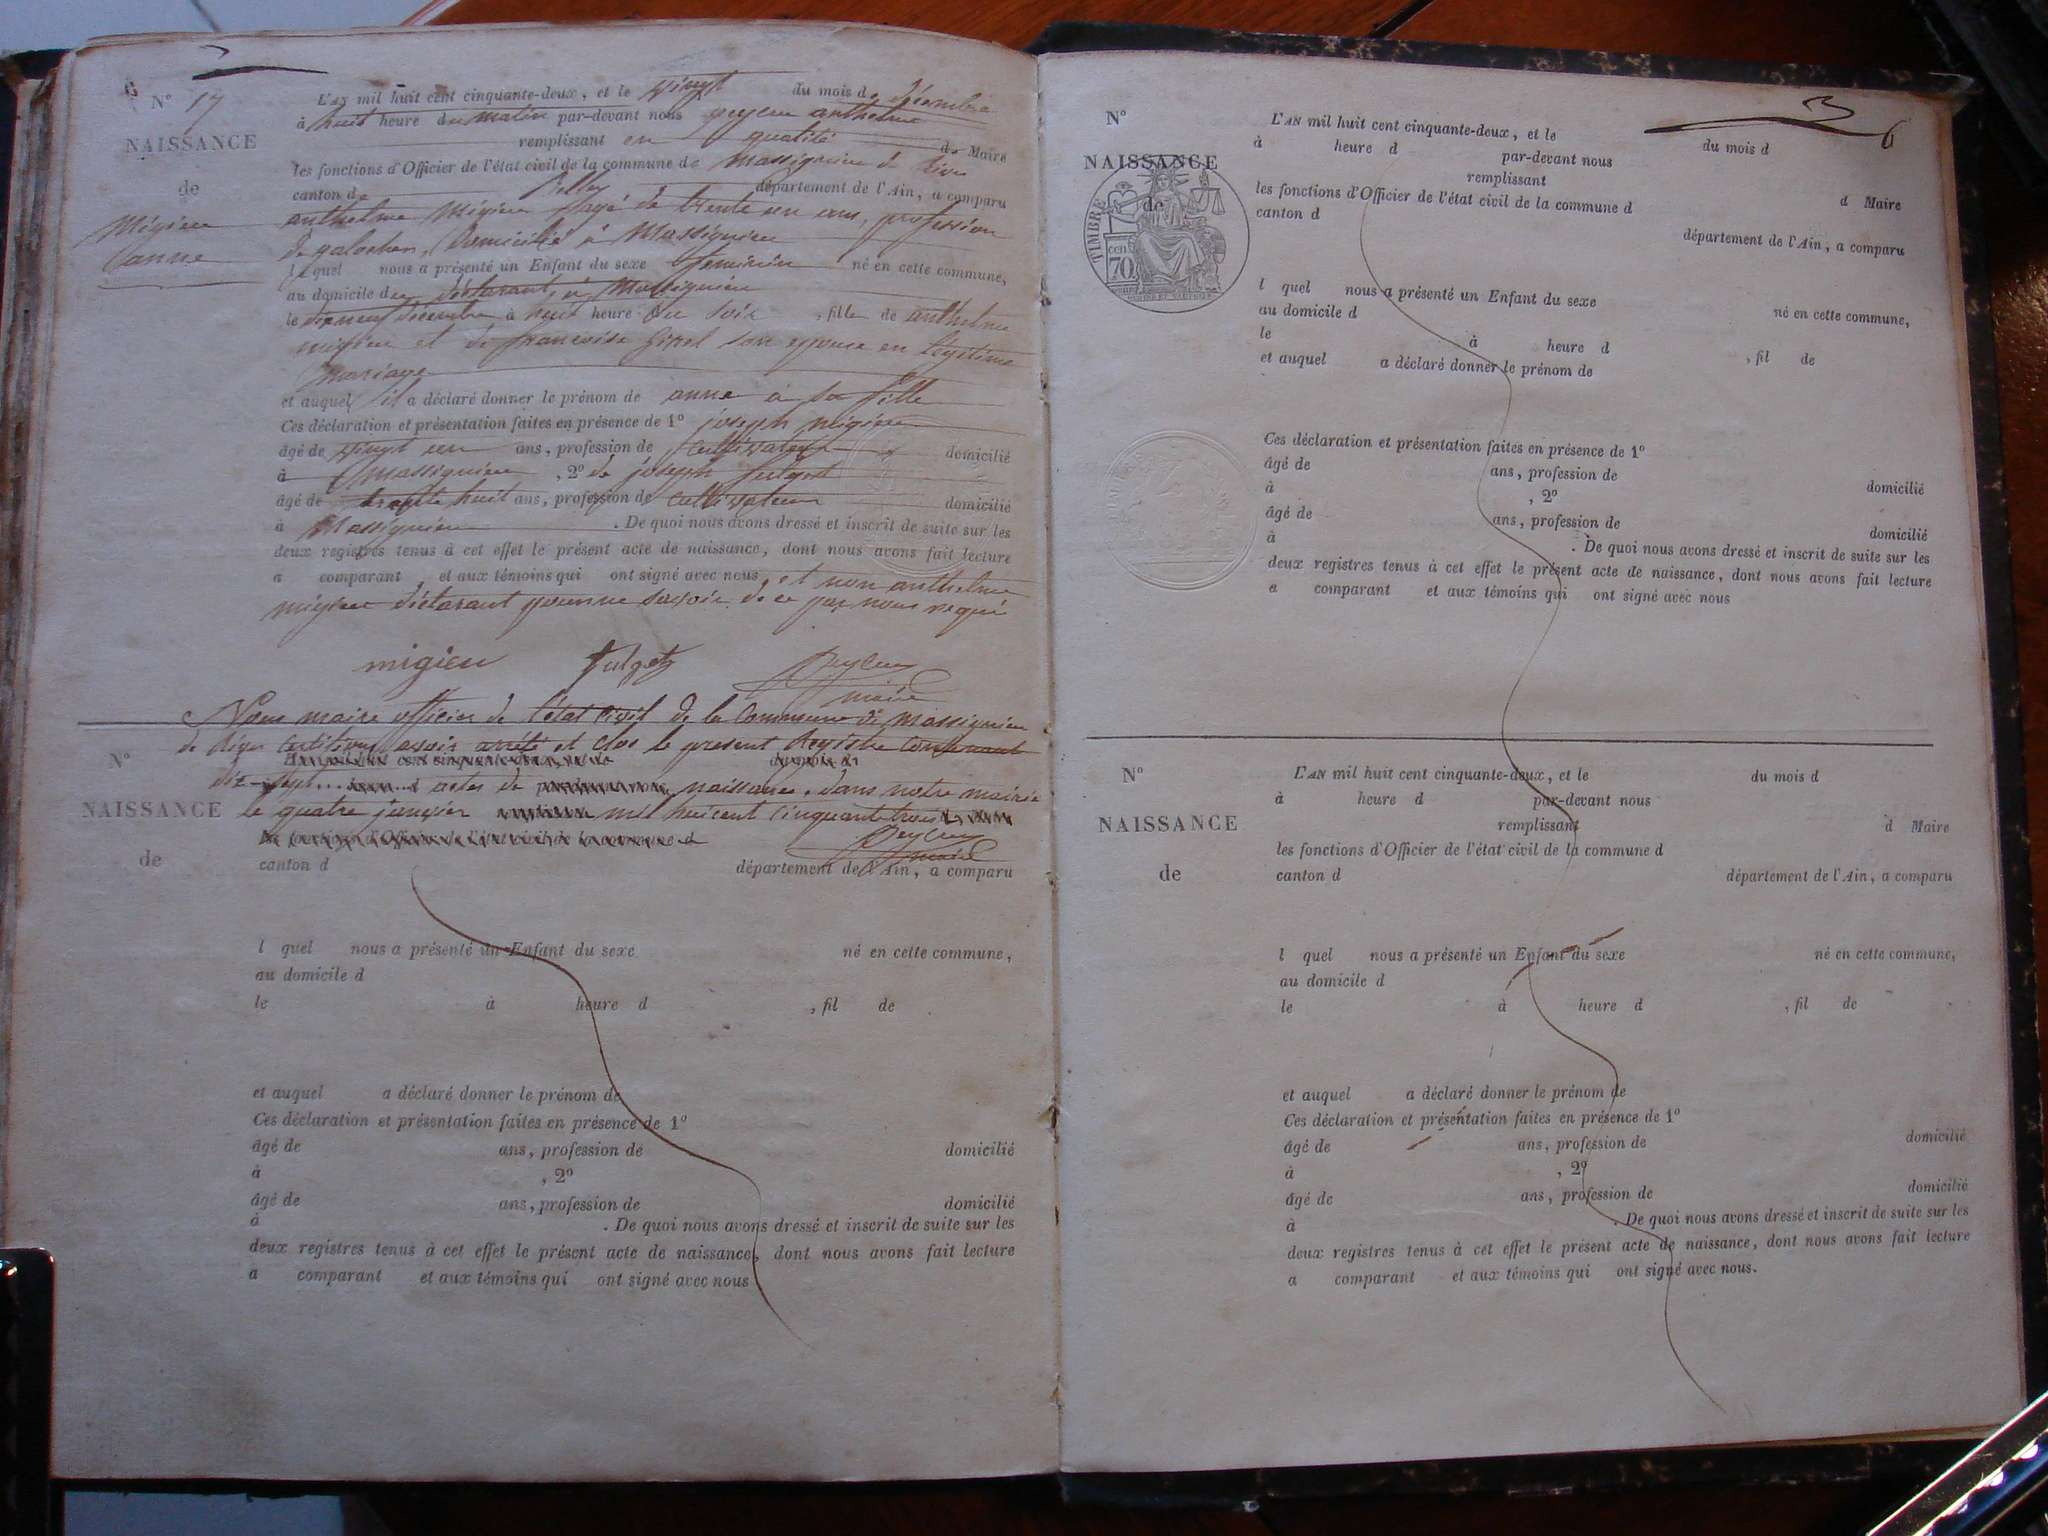 N° 17
NAISSANCE
de
Migieu
anne
L'AN mil huit cent cinquante-deux, et le vingt du mois de décembre
à huit heure du matin par-devant nous peyceu anthelme
remplissant en qualité de Maire
les fonctions d'Officier de l'état civil de la commune de Massignieu de Rives
canton de Belley département de l'Ain, a comparu
anthelme Migieu âgé de trente un ans, profession
de galochen, domicilié à Massignieu
lequel nous a présenté un Enfant du sexe feminin né en cette commune,
au domicile du déclarant à Massignieu
le dixneuf décembre à huit heure du soir, fille de anthelme
migieu et de françoise son epouse en légitime
mariage
et auquel il a déclaré donner le prénom de anne à sa fille
Ces déclaration et présentation faites en présence de 1° joseph migieu
âgé de vingt un ans, profession de cultivateur domicilié
à Massignieu, 2° de joseph
âgé de trente huit ans, profession de cultivateur domicilié
à Massignieu. De quoi nous avons dressé et inscrit de suite sur les
deux registres tenus à cet effet le présent acte de naissance, dont nous avons fait lecture
a comparant, et aux témoins qui ont signé avec nous, et non anthelme
migieu déclarant pour ne savoir de ce par nous requi
migieu
maire
Nous maire officier de l'état civil de la Commune de Massignieu
de Rives certifions avoir arrêté et clos le present Registre contenant
dix-sept actes de naissance, dans notre mairie
le quatre janvier mil huit cent cinquante trois
maire
N°
NAISSANCE
de
canton d département de l'Ain, a comparu
l quel nous a présenté un Enfant du sexe né en cette commune,
au domicile d
le à heure d , fil de
et auquel a déclaré donner le prénom de
Ces déclaration et présentation faites en présence de 1°
âgé de ans, profession de domicilié
à , 2°
âgé de ans, profession de domicilié
à . De quoi nous avons dressé et inscrit de suite sur les
deux registres tenus à cet effet le présent acte de naissance, dont nous avons fait lecture
a comparant et aux témoins qui ont signé avec nous
6
N°
NAISSANCE
de
TIMBRE
70 cen
L'AN mil huit cent cinquante-deux, et le du mois d
à heure d par-devant nous
remplissant d Maire
les fonctions d'Officier de l'état civil de la commune d
canton d département de l'Ain, a comparu
l quel nous a présenté un Enfant du sexe né en cette commune,
au domicile d
le à heure d , fil de
et auquel a déclaré donner le prénom de
Ces déclaration et présentation faites en présence de 1°
âgé de ans, profession de domicilié
à , 2°
âgé de ans, profession de domicilié
à . De quoi nous avons dressé et inscrit de suite sur les
deux registres tenus à cet effet le présent acte de naissance, dont nous avons fait lecture
a comparant et aux témoins qui ont signé avec nous
N°
NAISSANCE
de
L'AN mil huit cent cinquante-deux, et le du mois d
à heure d par-devant nous
remplissant d Maire
les fonctions d'Officier de l'état civil de la commune d
canton d département de l'Ain, a comparu
l quel nous a présenté un Enfant du sexe né en cette commune,
au domicile d
le à heure d , fil de
et auquel a déclaré donner le prénom de
Ces déclaration et présentation faites en présence de 1°
âgé de ans, profession de domicilié
à , 2°
âgé de ans, profession de domicilié
à . De quoi nous avons dressé et inscrit de suite sur les
deux registres tenus à cet effet le présent acte de naissance, dont nous avons fait lecture
a comparant et aux témoins qui ont signé avec nous.